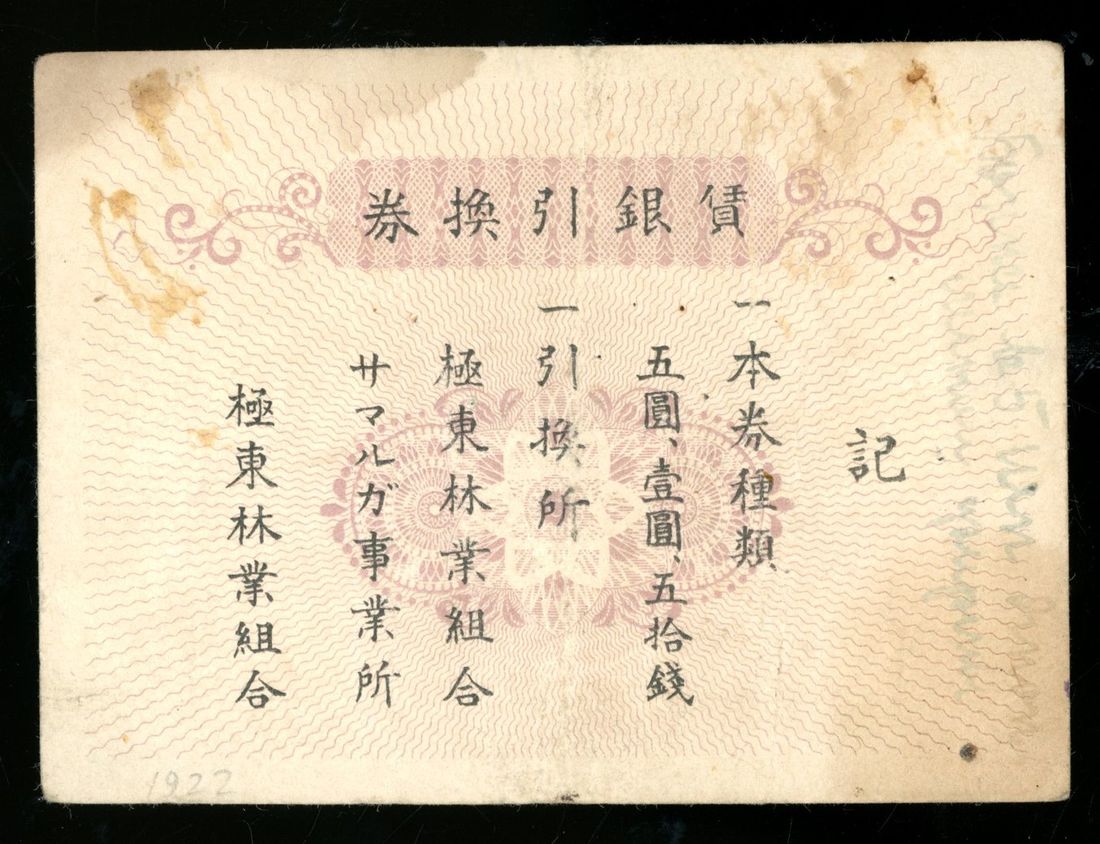 賃銀引換券
記
一本券種類
五圓、壹圓、五拾錢
一引換所
極東林業組合
サマルガ事業所
極東林業組合
1922